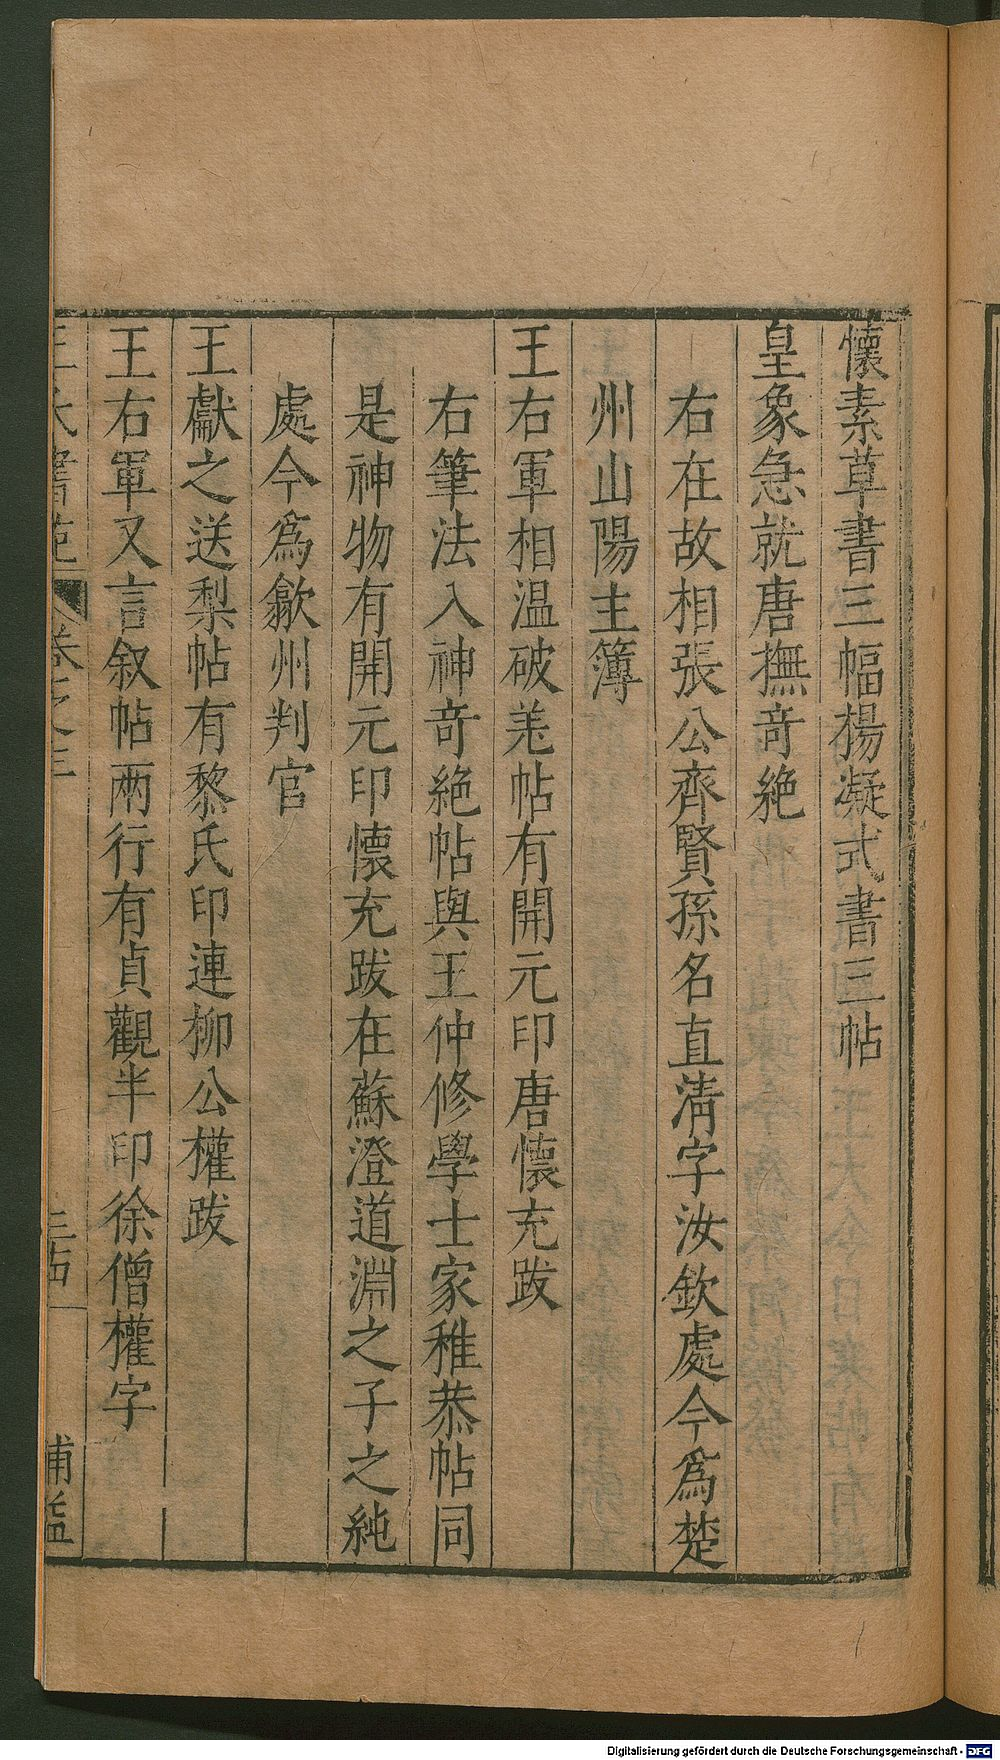 懷素草書三幅楊凝式書三帖
皇象急就唐撫奇絶
右在故相張公齊賢孫名直清字汝欽處今爲楚
州山陽主簿
王右軍相温破羗帖有開元印唐懷充跋
右筆法入神奇絶帖與王仲修學士家稚恭帖同
是神物有開元印懷充跋在蘇澄道淵之子之純
處今爲歙州判官
王獻之送梨帖有黎氏印連柳公權跋
王右軍又言叙帖兩行有貞觀半印徐僧權字
王氏書苑 卷之三
Digitalisierung gefördert durch die Deutsche Forschungsgemeinschaft - DFG